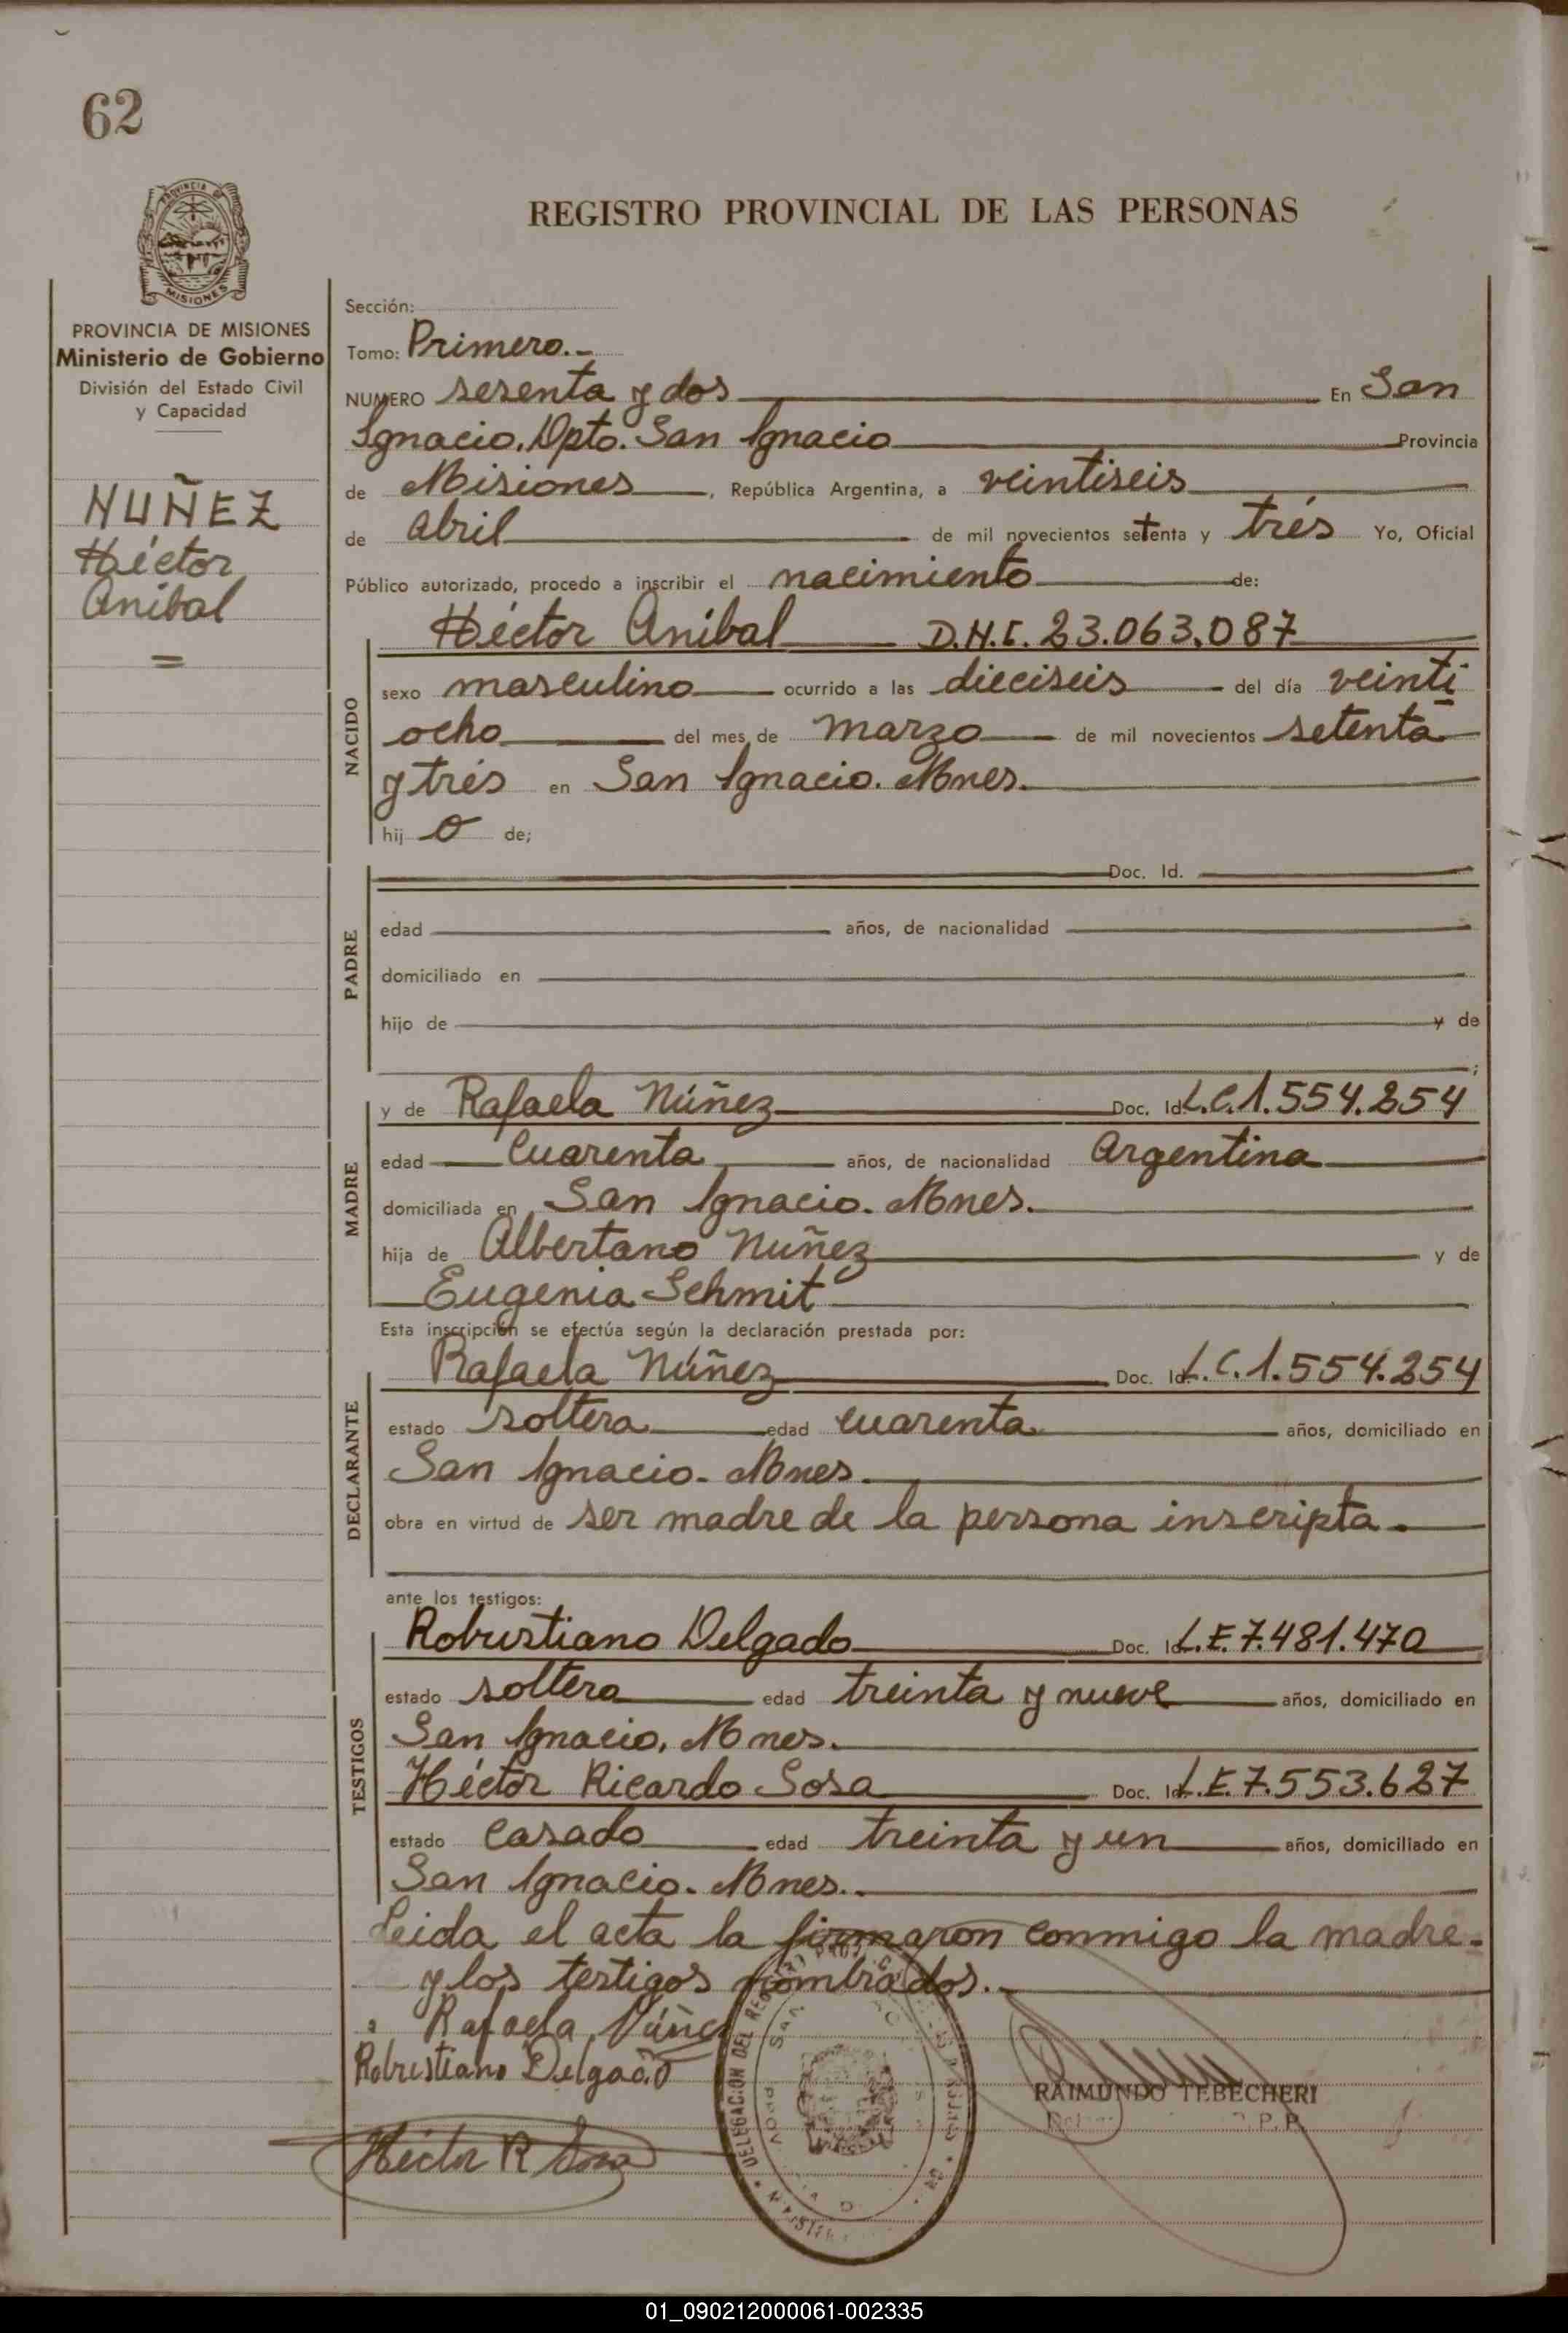 62
PROVINCIA DE
MISIONES
REGISTRO PROVINCIAL DE LAS PERSONAS
PROVINCIA DE MISIONES
Ministerio de Gobierno
División del Estado Civil
y Capacidad
NUÑEZ
Héctor
Anibal
=
Sección:
Tomo: Primero.-
NUMERO sesenta y dos En San
Ignacio, Dpto. San Ignacio Provincia
de Misiones, República Argentina, a veintiseis
de abril de mil novecientos setenta y trés Yo, Oficial
Público autorizado, procedo a inscribir el nacimiento de:
NACIDO
Héctor Anibal D.N.I. 23.063.087
sexo masculino ocurrido a las dieciseis del día veinti
ocho del mes de marzo de mil novecientos setenta
y trés en San Ignacio. Mnes.
hij o de;
PADRE
Doc. Id.
edad años, de nacionalidad
domiciliado en
hijo de y de
;
MADRE
y de Rafaela Núñez Doc. Id. L.C. 1.554.254
edad Cuarenta años, de nacionalidad Argentina
domiciliada en San Ignacio. Mnes.
hija de Albertano Nuñez y de
Eugenia Schmit
Esta inscripción se efectúa según la declaración prestada por:
DECLARANTE
Rafaela Núñez Doc. Id. L.C. 1.554.254
estado soltera edad cuarenta años, domiciliado en
San Ignacio - Mnes.
obra en virtud de ser madre de la persona inscripta.
ante los testigos:
TESTIGOS
Robustiano Delgado Doc. Id. L.E. 7.481.470
estado soltero edad treinta y nueve años, domiciliado en
San Ignacio, Mnes.
Héctor Ricardo Sosa Doc. Id. L.E. 7.553.627
estado casado edad treinta y un años, domiciliado en
San Ignacio. Mnes.
Leida el acta la firmaron conmigo la madre
y los testigos nombrados.
Rafaela Núñez
Robustiano Delgado
Héctor R Sosa
DELEGACION DEL
SAN
RAIMUNDO TEBECHERI
01_090212000061-002335